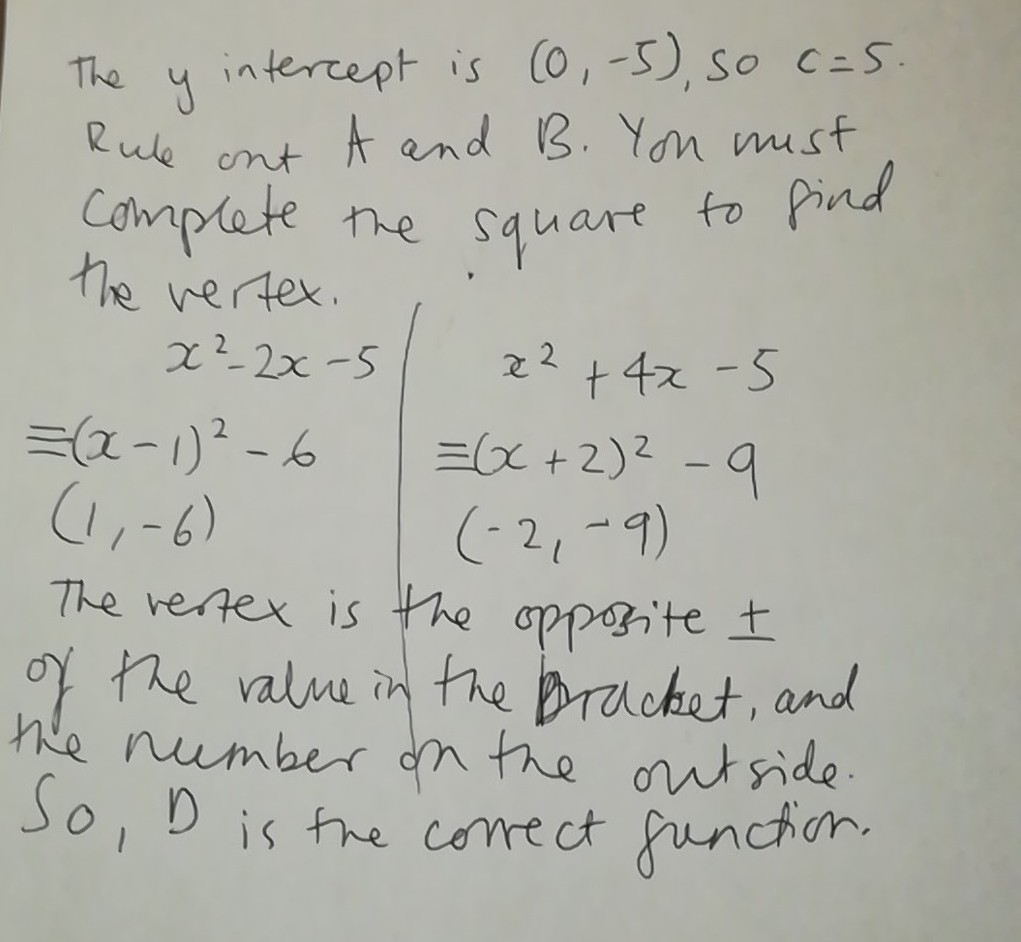 The y intercept is (0, -5), so c=5.
Rule out A and B. You must
complete the square to find
the vertex.
x² - 2x - 5
≡(x - 1)² - 6
(1, -6)
x² + 4x - 5
≡(x + 2)² - 9
(-2, -9)
The vertex is the opposite ±
of the value in the bracket, and
the number on the outside.
So, D is the correct function.